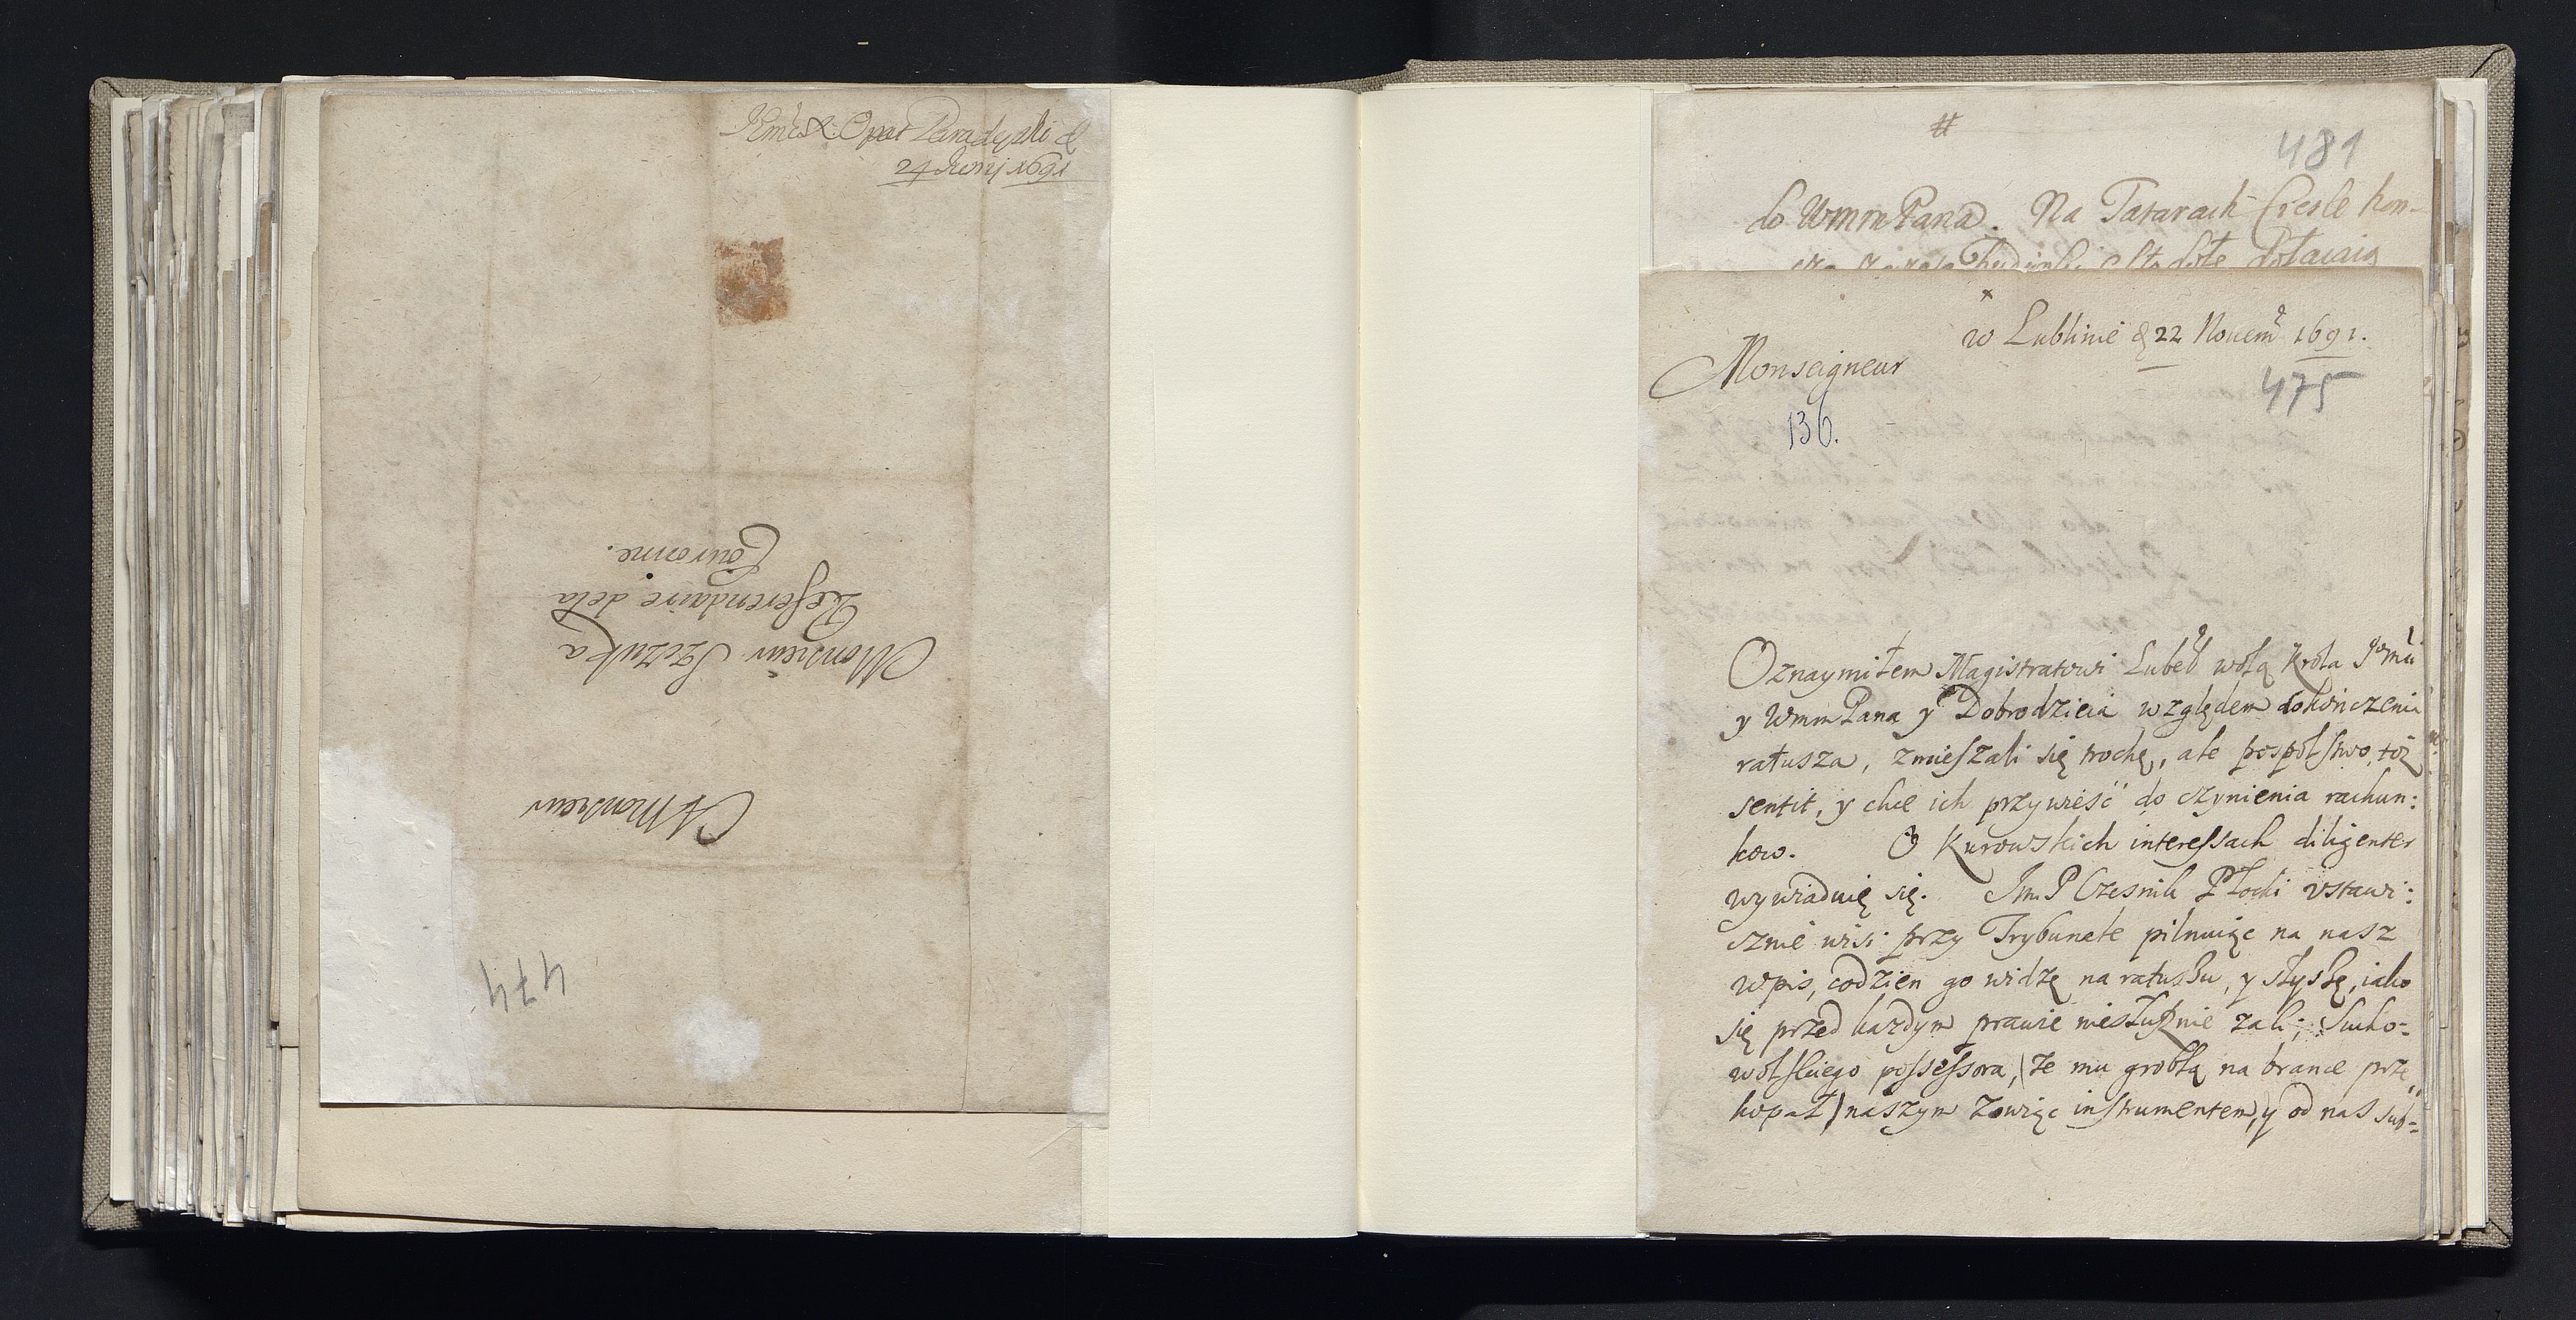 Jmć X. Opat Paradyzki d
24 Junij 1691
A Monsieur
Monsieur Szczuka
Referendaire de la
Couronne.
474
#
481
do Wmm Pana. Na Tatarach Cresle kon-
w Lublinie d 22 Novem 1691.
Monseigneur
475
136.
Oznaymiłem Magistratowi Lubel wolą Krola Jomci
y Wmm Pana y Dobrodzieia względem dokończenia
ratusza, zmieszali się trochę, ale pospolstwo, toż
sentit, y chce ich przywieść do czynienia rachun:
kow. O Kurowskich interessach diligenter
wywiaduię się. Jm P Czesnik Płocki vstawi:
cznie wisi przy Trybunale pilnuiąc na nasz
wpis, codzien go widzę na ratuszu, y słyszę, iako
się przed każdym prawie niesłusznie żali; Sucho-
wolskiego possessora, (że mu groblą na brance prze
kopał) naszym zowiąc instrumentem, y od nas sub-